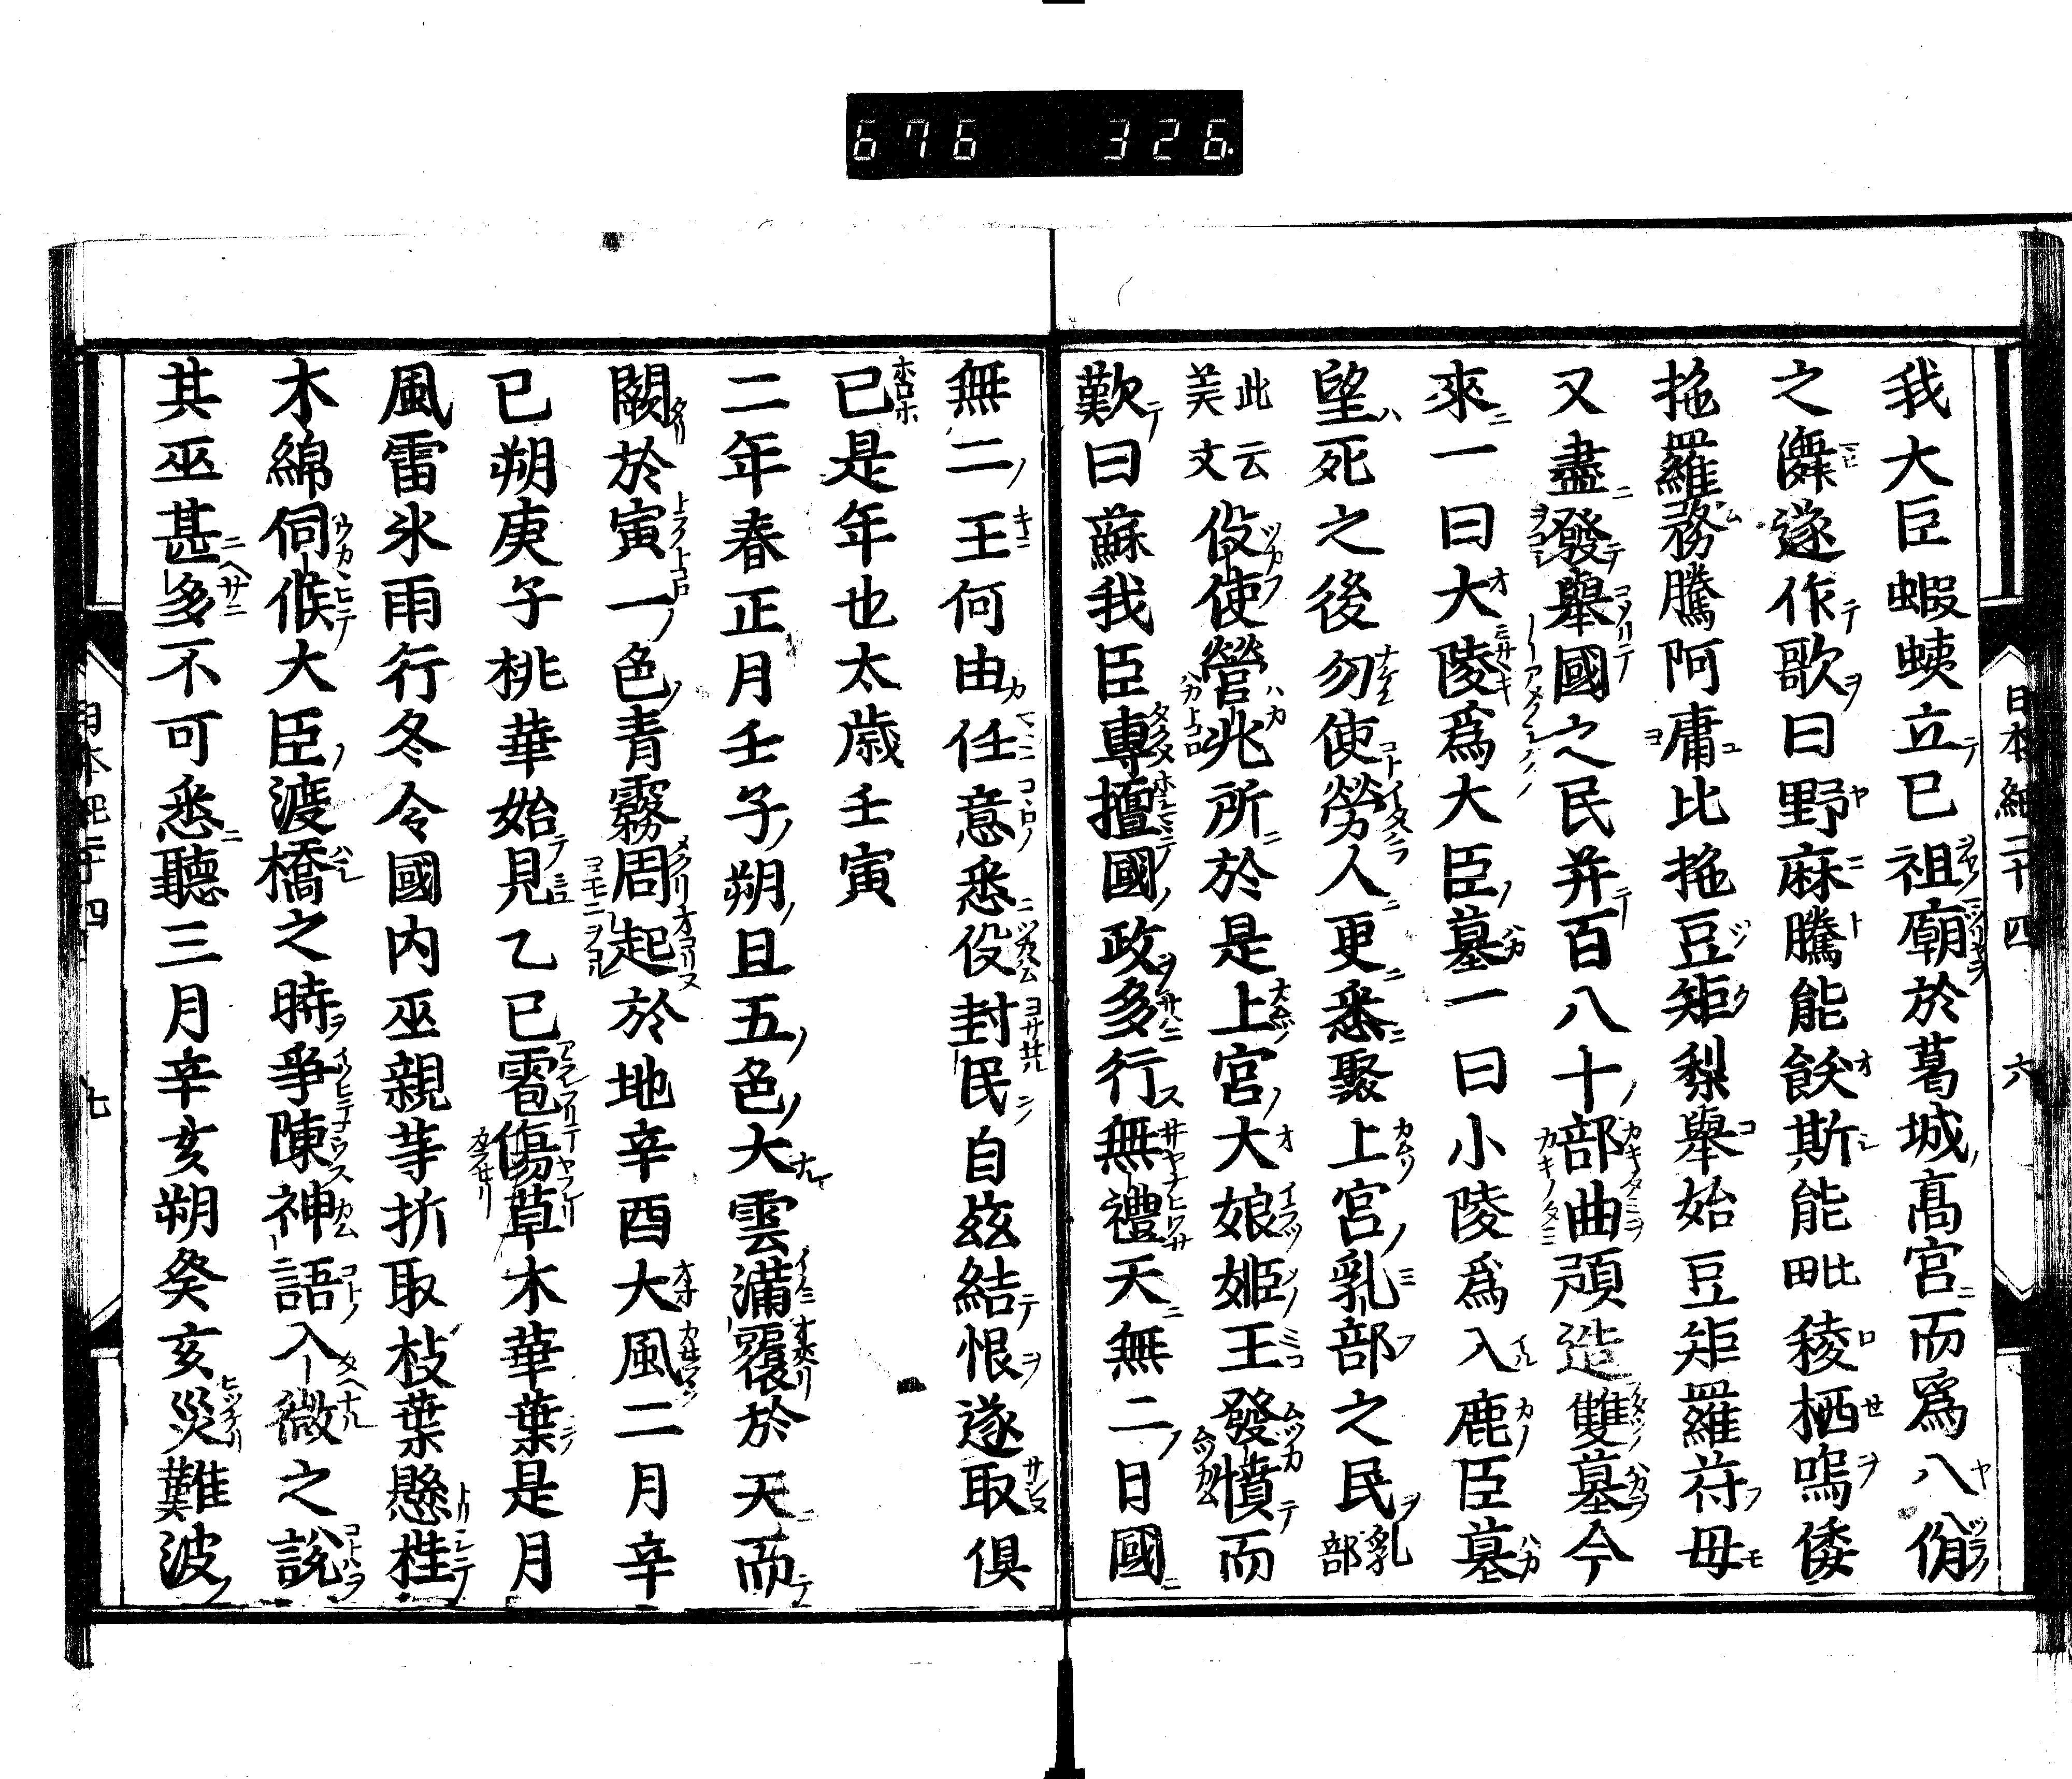 676 326.
日本紀二十四 六
我大臣蝦蛦立已祖廟於葛城髙宮而爲八佾
之儛遂作歌曰野麻騰能飫斯能毗稜栖嗚倭
拖羅務騰阿庸比拖豆矩梨擧始豆矩羅符母
又盡發擧國之民并百八十部曲預造雙墓今
來一曰大陵爲大臣墓一曰小陵爲入鹿臣墓
望死之後勿使勞人更悉聚上宮乳部之民乳部
此云美文伇使營兆所於是上宮大娘姬王發憤而
歎曰蘇我臣專擅國政多行無禮天無二日國
無二王何由任意悉伇封民自玆結恨遂取俱
已是年也太歲壬寅
二年春正月壬子朔旦五色大雲滿覆於天而
闕於寅一色青霧周起於地辛酉大風二月辛
已朔庚子桃華始見乙已雹傷草木華葉是月
風雷氷雨行冬令國内巫覡等折取枝葉懸掛
木綿伺候大臣渡橋之時爭陳神語入微之說
其巫甚多不可悉聽三月辛亥朔癸亥災難波
日本紀二十四 七